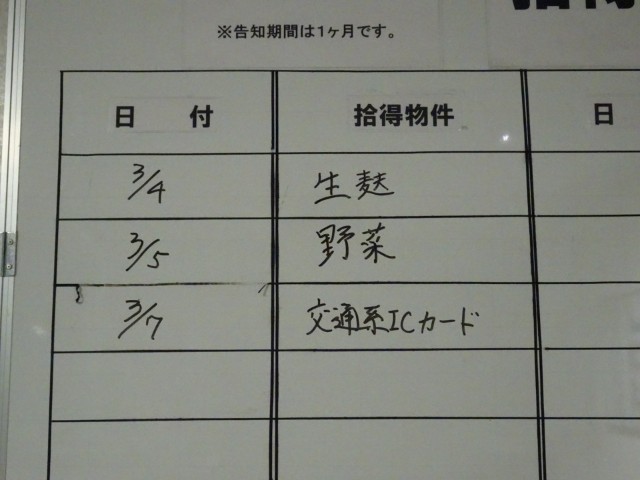 ※告知期間は1ヶ月です。
日 付 拾得物件 日
3/4 生麩
3/5 野菜
3/7 交通系ICカード